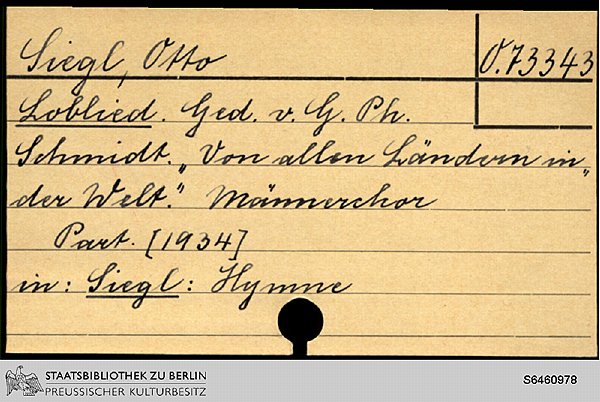 Siegl, Otto
O.73343
Loblied. Ged. v. G. Ph.
Schmidt. „Von allen Ländern in
der Welt.“ Männerchor
Part. [1934]
in: Siegl: Hymne
STAATSBIBLIOTHEK ZU BERLIN
PREUSSISCHER KULTURBESITZ
S6460978